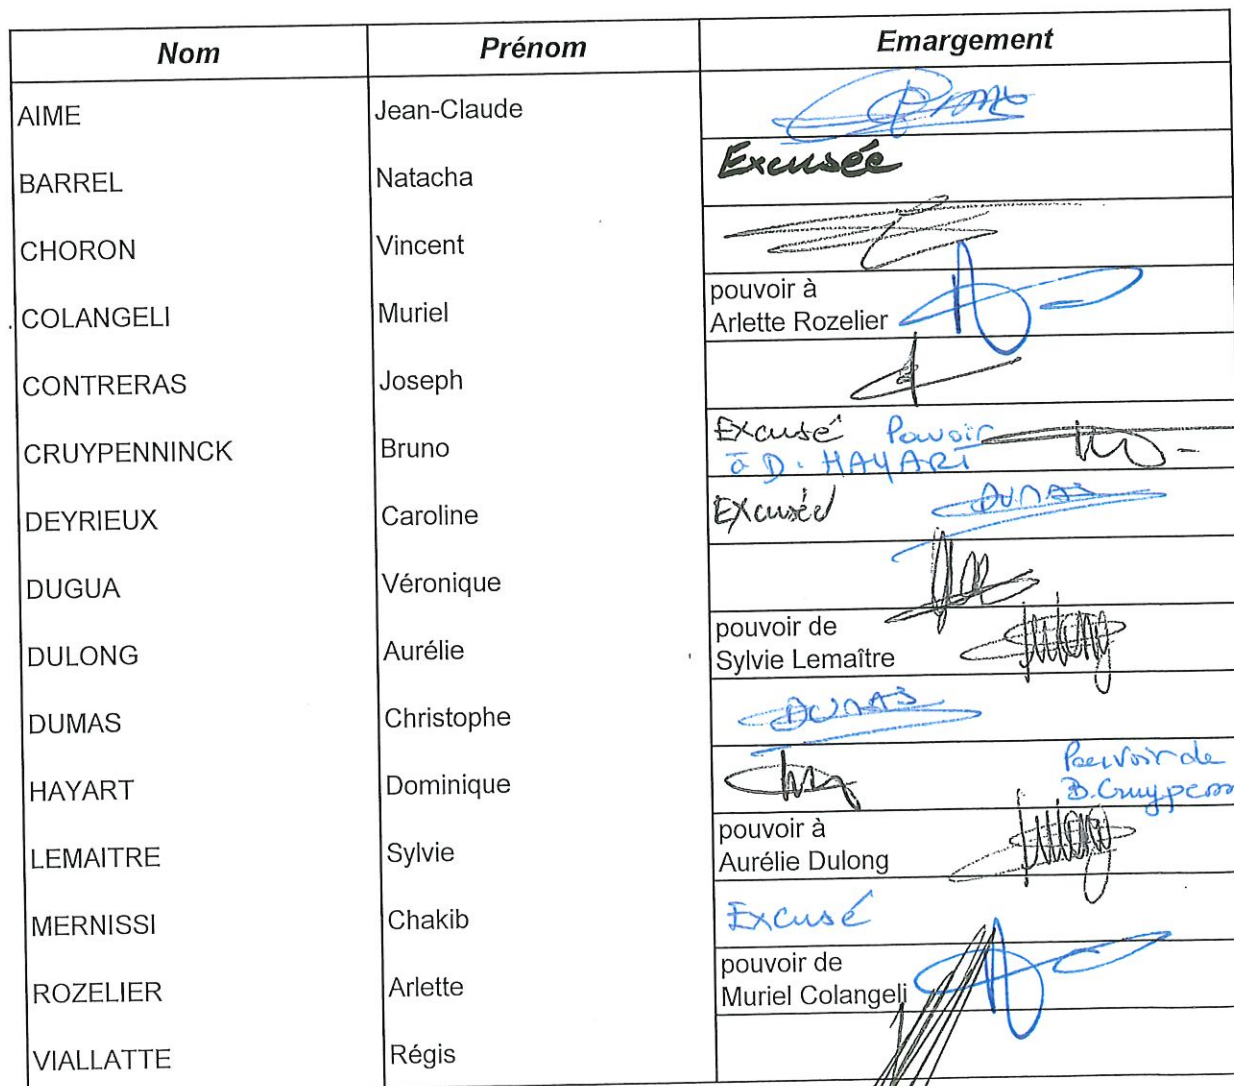 Nom Prénom Emargement
AIME Jean-Claude
BARREL Natacha Excusée
CHORON Vincent
COLANGELI Muriel pouvoir à
Arlette Rozelier
CONTRERAS Joseph
CRUYPENNINCK Bruno Excusé Pouvoir
à D. HAYART
DEYRIEUX Caroline Excusée DUMAS
DUGUA Véronique
DULONG Aurélie pouvoir de
Sylvie Lemaître Dulong
DUMAS Christophe DUMAS
HAYART Dominique Pouvoir de
B. Cruypenn
LEMAITRE Sylvie pouvoir à
Aurélie Dulong Dulong
MERNISSI Chakib Excusé
ROZELIER Arlette pouvoir de
Muriel Colangeli
VIALLATTE Régis